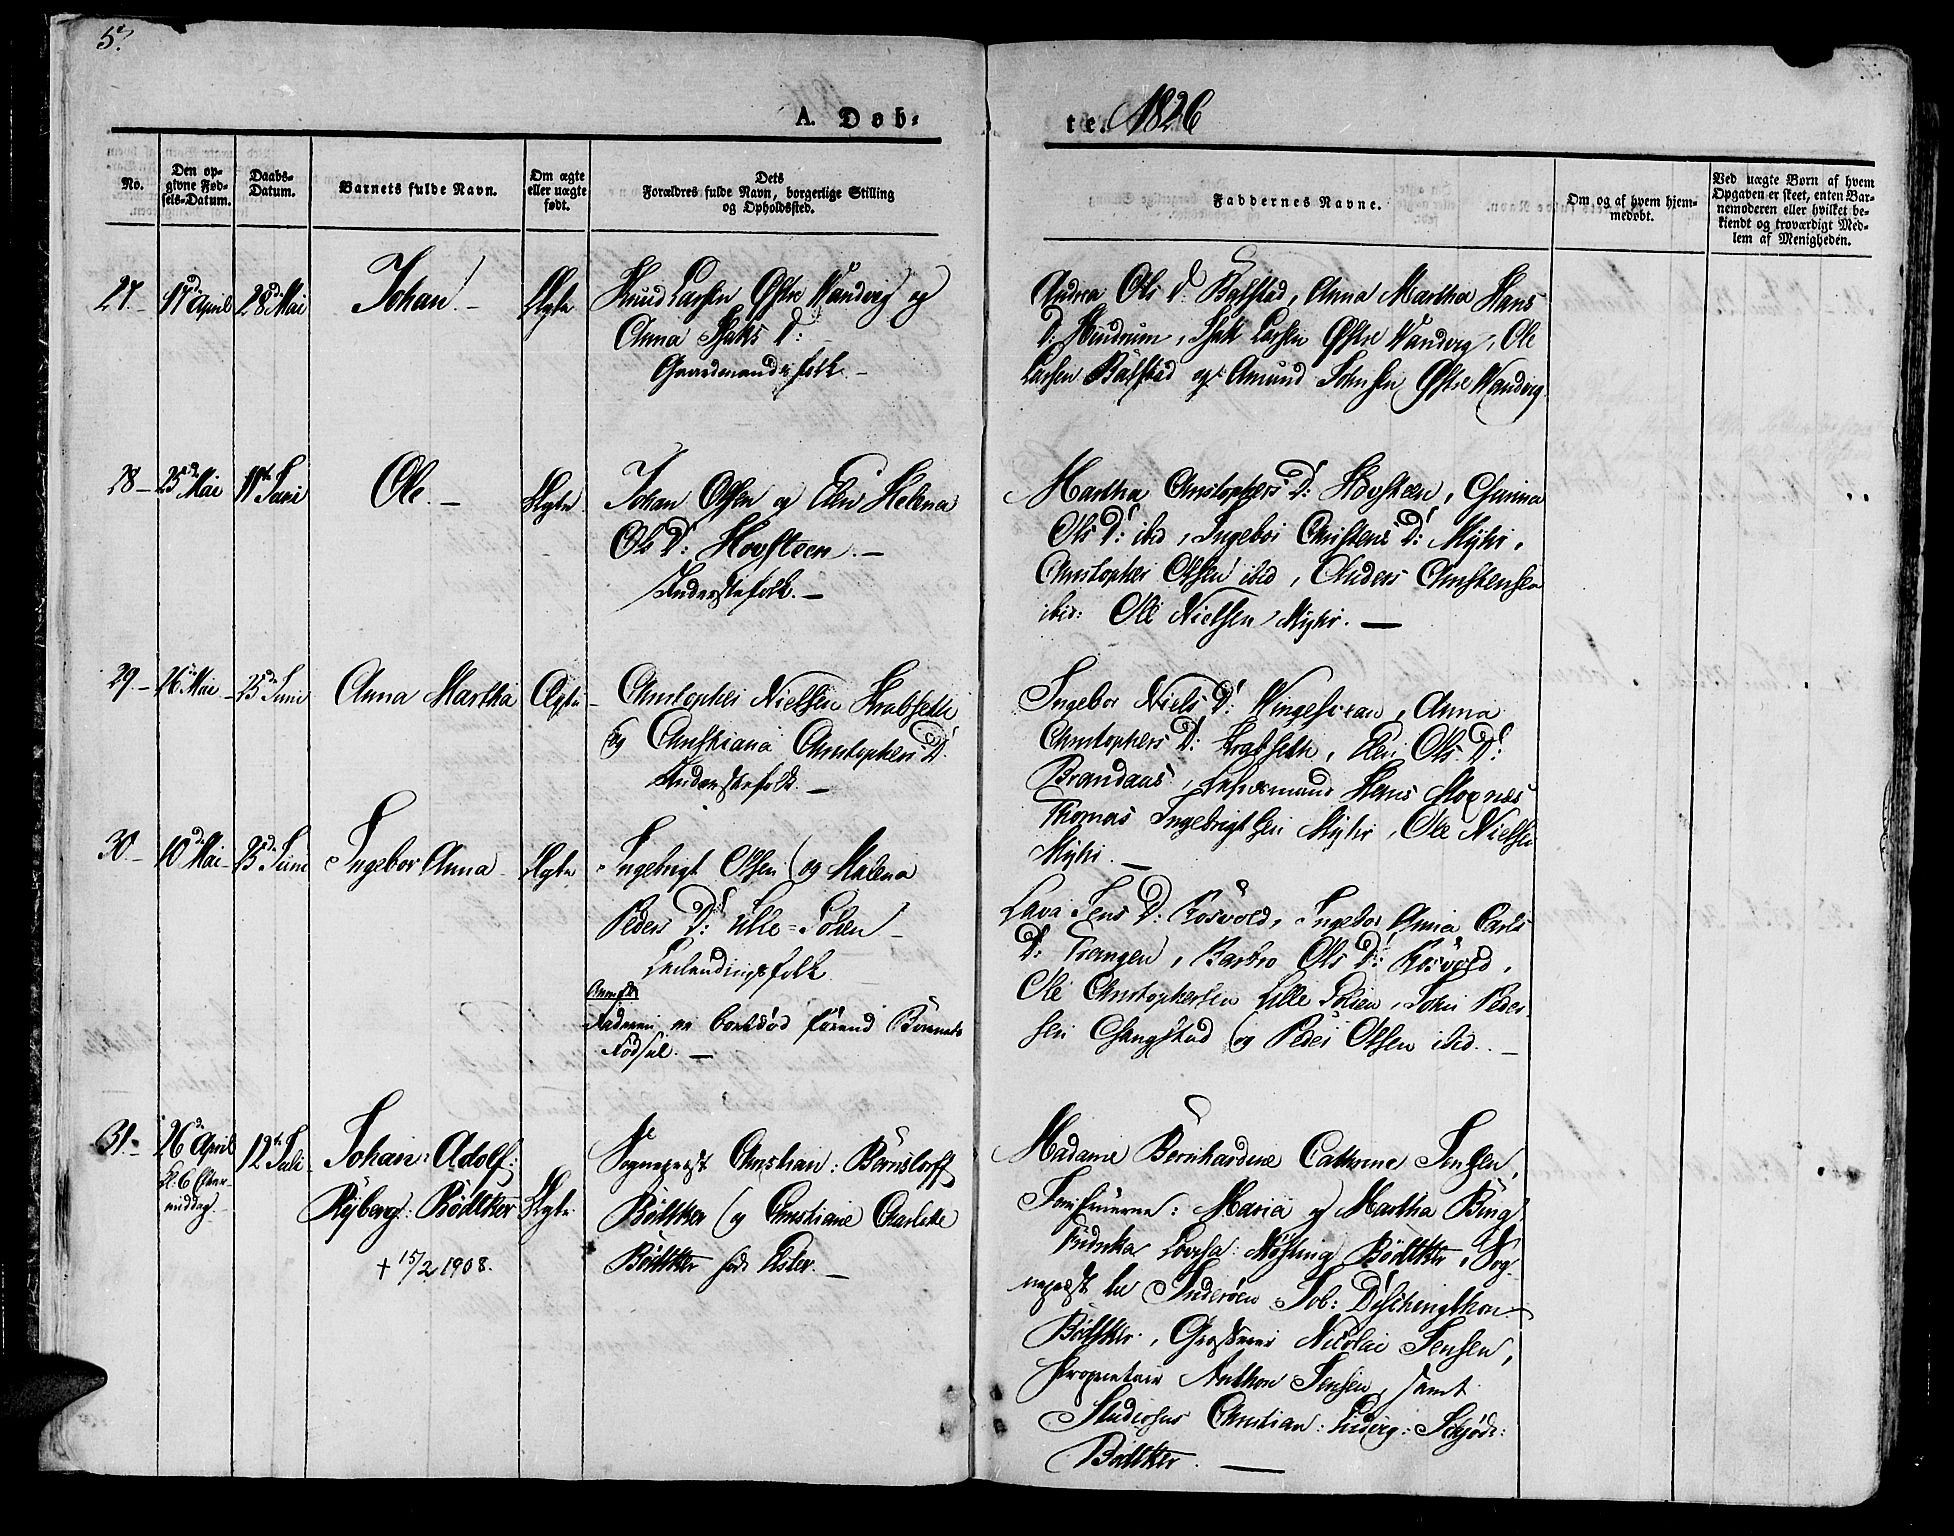 57
A. Døb-
te. 1826
No.
Den op-
givne Fød-
sels-Datum.
Daabs-
Datum.
Barnets fulde Navn.
Om ægte
eller uægte
født.
Dets
Forældres fulde Navn, borgerlige Stilling
og Opholdssted.
Faddernes Navne.
Om og af hvem hjem-
medøbt.
Ved uægte Børn af hvem
Opgaven er skeet, enten Bar-
nemoderen eller hvilket be-
kiendt og troværdigt Med-
lem af Menigheden.
27.
April
28de Mai
Johan.
Ægte
Knud Larsen Østre Wandvig og
Anna Isaks D:
Gaardmandsfolk.
Andrea Ols D: Balstad, Anna Martha Hans
D: Hindrum, Isak Larsen Østre Wandvig, Ole
Larsen Balstad og Amund Johnsen Østre Wandvig
28
25de Mai
11te Juni
Ole.
Ægte
Johan Olsen og Elen Helena
Ols D: Hovsteen.
Inderstefolk.
Martha Christophers D: Hovsteen, Gunina
Ols D: ibid, Ingebor Christens D: Myhr,
Christopher Olsen ibid, Anders Christensen
ibid: Ole Nielsen Myhr.
29.
26 Mai
25de Juni
Anna Martha
Ægte
Christopher Nielsen Krabseth
og Christiana Christophers D:
Inderstefolk.
Ingebor Niels D: Wingesvean, Anna
Christophers D: Krabseth, Elen Ols D:
Brandaas, Lehnsmand Hans Moxnæs
Thomas Ingebrigtsen Myhr, Ole Nielsen
Myhr.
30.
10de Mai
25de Juni
Ingebor Anna
Ægte
Ingebrigt Olsen og Malena
Peders D: Lille-Solien
Leilændingsfolk
Anmk
Faderen er bortdød førend Barnets
Fødsel.
Lava Jens D: Rosvold, Ingebor Anna Carls
D: Trangen, Barbro Ols D: Rosvold,
Ole Christophersen Lille Solien, John Peder-
sen Gangstad og Peder Olsen ibid.
31.
26de April
kl. 6 Efter-
middag.
12te Juli
Johan: Adolf:
Ryberg: Bödtker
+ 15/2 1908.
Ægte
Sognepræst Christian: Bernstorff
Bödtker og Christiane Charlotte
Bödtker född Elster.
Madame Bernhardine Cathrine Jensen,
Jomfruerne: Maria og Martha Bing
Fridrika Lovisa: Mösting Bödtker, Sog-
nepræst til Inderöen Job: Dischingthon
Bödtker, Grosserer Nicolai Jensen,
Proprietair Anthon Jensen, samt
Studiosus Christian: Ludvig: Schjöde:
Bödtker.